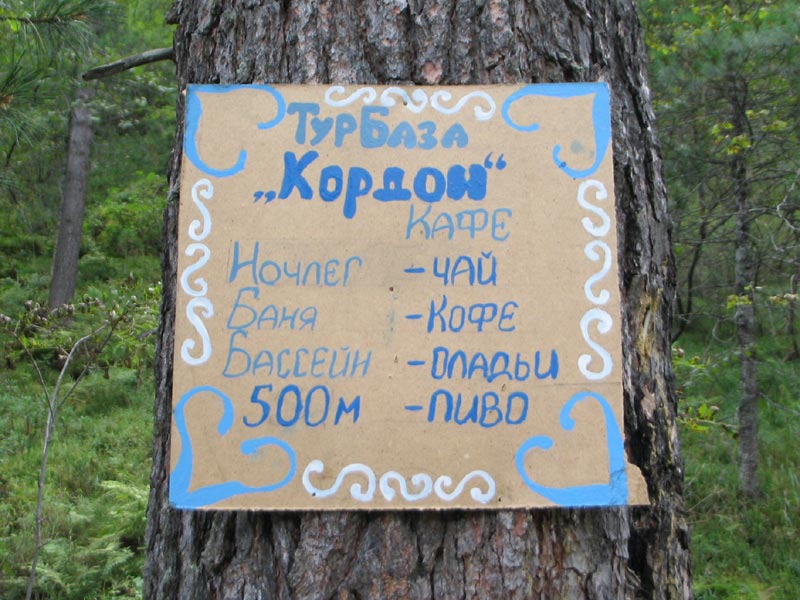 ТурБаза
„Кордон“
Кафе
Ночлег -Чай
Баня -Кофе
Бассейн -Оладьи
500м -Пиво